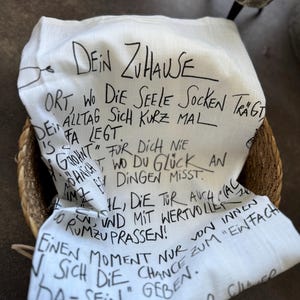 DEIN ZUHAUSE
ORT, WO DIE SEELE SOCKEN TRÄGT
ALLTAG SICH KURZ MAL
LEGT.
FÜR DICH NIE
WO DU GLÜCK AN
DINGEN MISST.
DIE TÜR AUCH MAL
UND MIT WERTVOLLEN
RUMZUPRASSEN!
EINEN MOMENT NUR VON
SICH DIE CHANCE ZUM "EINFACH
DA-SEIN" GEBEN.